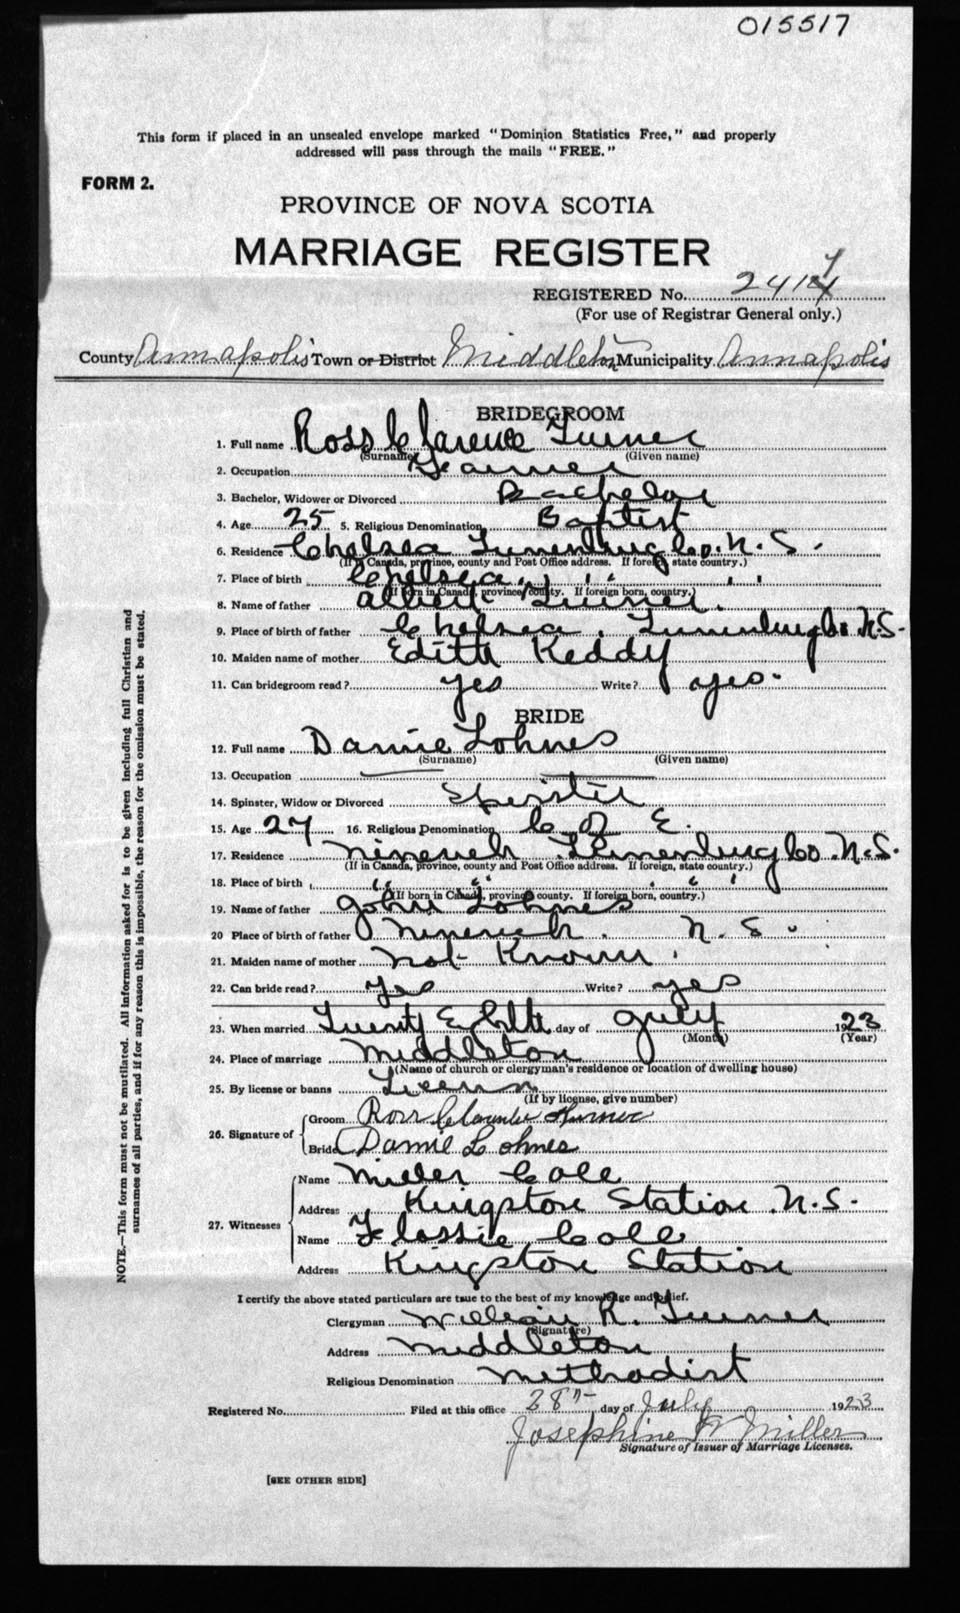 015517
This form if placed in an unsealed envelope marked "Dominion Statistics Free," and properly
addressed will pass through the mails "FREE."
FORM 2.
PROVINCE OF NOVA SCOTIA
MARRIAGE REGISTER
REGISTERED No. 241
(For use of Registrar General only.)
County Annapolis Town or District Middleton Municipality Annapolis
BRIDEGROOM
1. Full name Ross Clarence Turner
(Surname) (Given name)
2. Occupation Farmer
3. Bachelor, Widower or Divorced Bachelor
4. Age 25 5. Religious Denomination Baptist
6. Residence Chelsea Lunenburg Co. N. S.
(If in Canada, province, county and Post Office address. If foreign, state country.)
7. Place of birth Chelsea " " " "
(If born in Canada, province, county. If foreign born, country.)
8. Name of father Albert Turner.
9. Place of birth of father Chelsea. Lunenburg Co. N.S.
10. Maiden name of mother Edith Keddy
11. Can bridegroom read? yes Write? yes.
BRIDE
12. Full name Damie Lohnes
(Surname) (Given name)
13. Occupation
14. Spinster, Widow or Divorced Spinster
15. Age 27 16. Religious Denomination C of E.
17. Residence Nineveh Lunenburg Co. N.S.
(If in Canada, province, county and Post Office address. If foreign, state country.)
18. Place of birth " " " "
(If born in Canada, province, county. If foreign born, country.)
19. Name of father John Lohnes
20 Place of birth of father Nineveh. N. S.
21. Maiden name of mother Not Known.
22. Can bride read? Yes Write? yes
23. When married Twenty Eighth day of July 1923
(Month) (Year)
24. Place of marriage Middleton
(Name of church or clergyman's residence or location of dwelling house)
25. By license or banns License
(If by license, give number)
26. Signature of Groom Ross Clarence Turner
Bride Damie Lohnes
27. Witnesses Name Miller Cole
Address Kingston Station N.S.
Name Flossie Cole
Address Kingston Station
I certify the above stated particulars are true to the best of my knowledge and belief.
Clergyman William R. Turner
(Signature)
Address Middleton
Religious Denomination Methodist
Registered No. Filed at this office 28th day of July 1923
Josephine W Miller
Signature of Issuer of Marriage Licenses.
[SEE OTHER SIDE]
NOTE.—This form must not be mutilated. All information asked for is to be given including full Christian and
surnames of all parties, and if for any reason this is impossible, the reason for the omission must be stated.